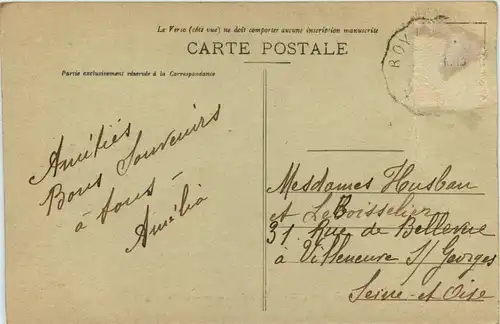 Le Verso (côté vue) ne doit comporter aucune inscription manuscrite
CARTE POSTALE
Partie exclusivement réservée à la Correspondance
ROY
Amitiés
Bons Souvenirs
à tous -
Amélia
Mesdames Husbau
et LeBoisselier
31. Rue de Bellevue
à Villeneuve S/ Georges
Seine-et Oise